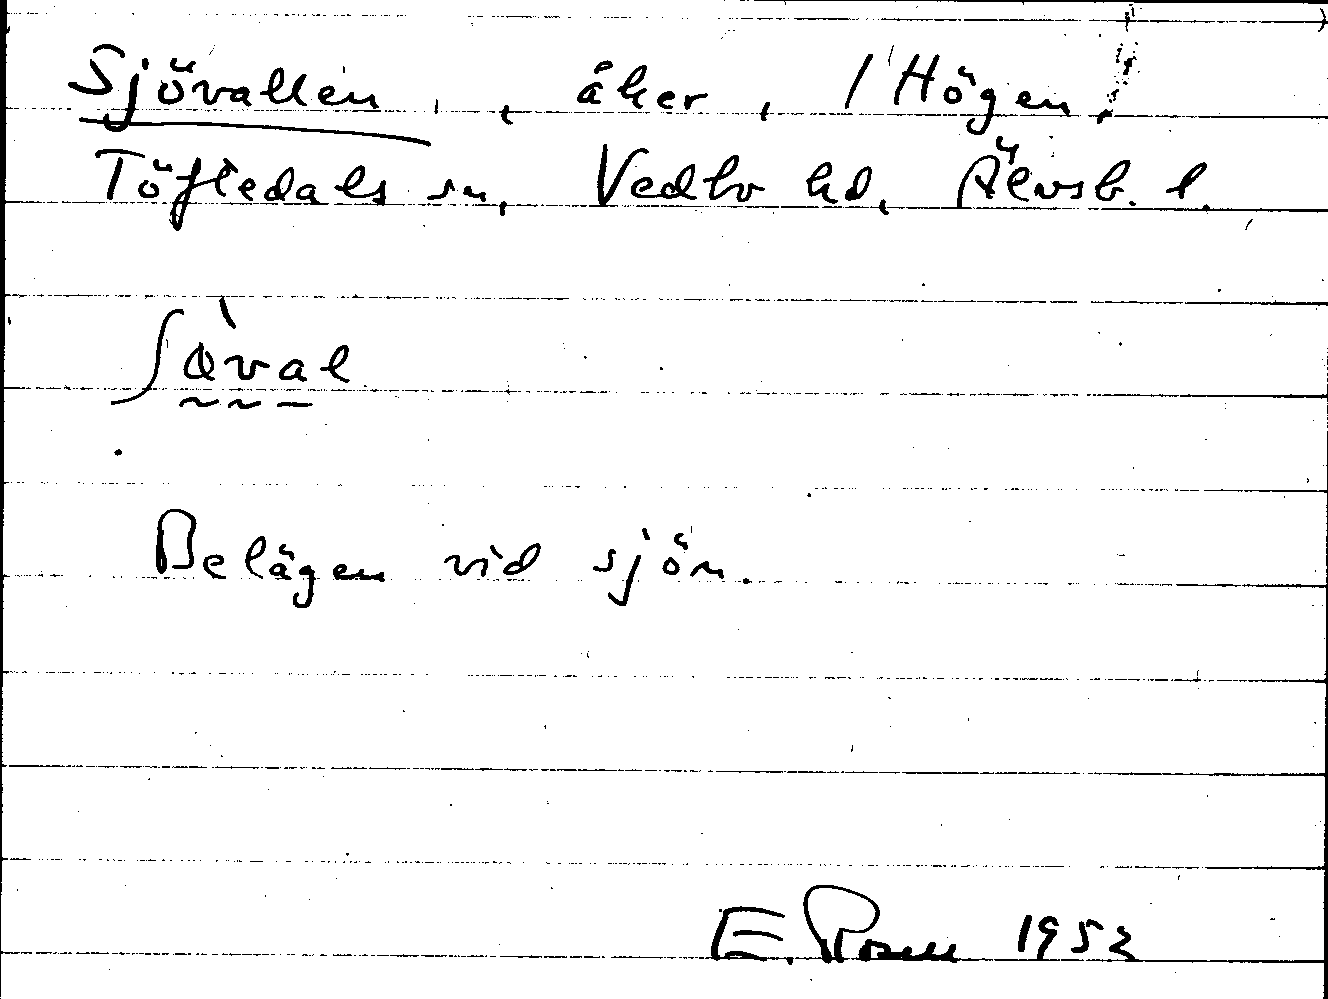 Sjövallen, åker, / Högen,
Töftedals sn, Vedbo hd, Älvsb. l.
ʃɵ̀val
Belägen vid sjön.
E. Rosen 1952